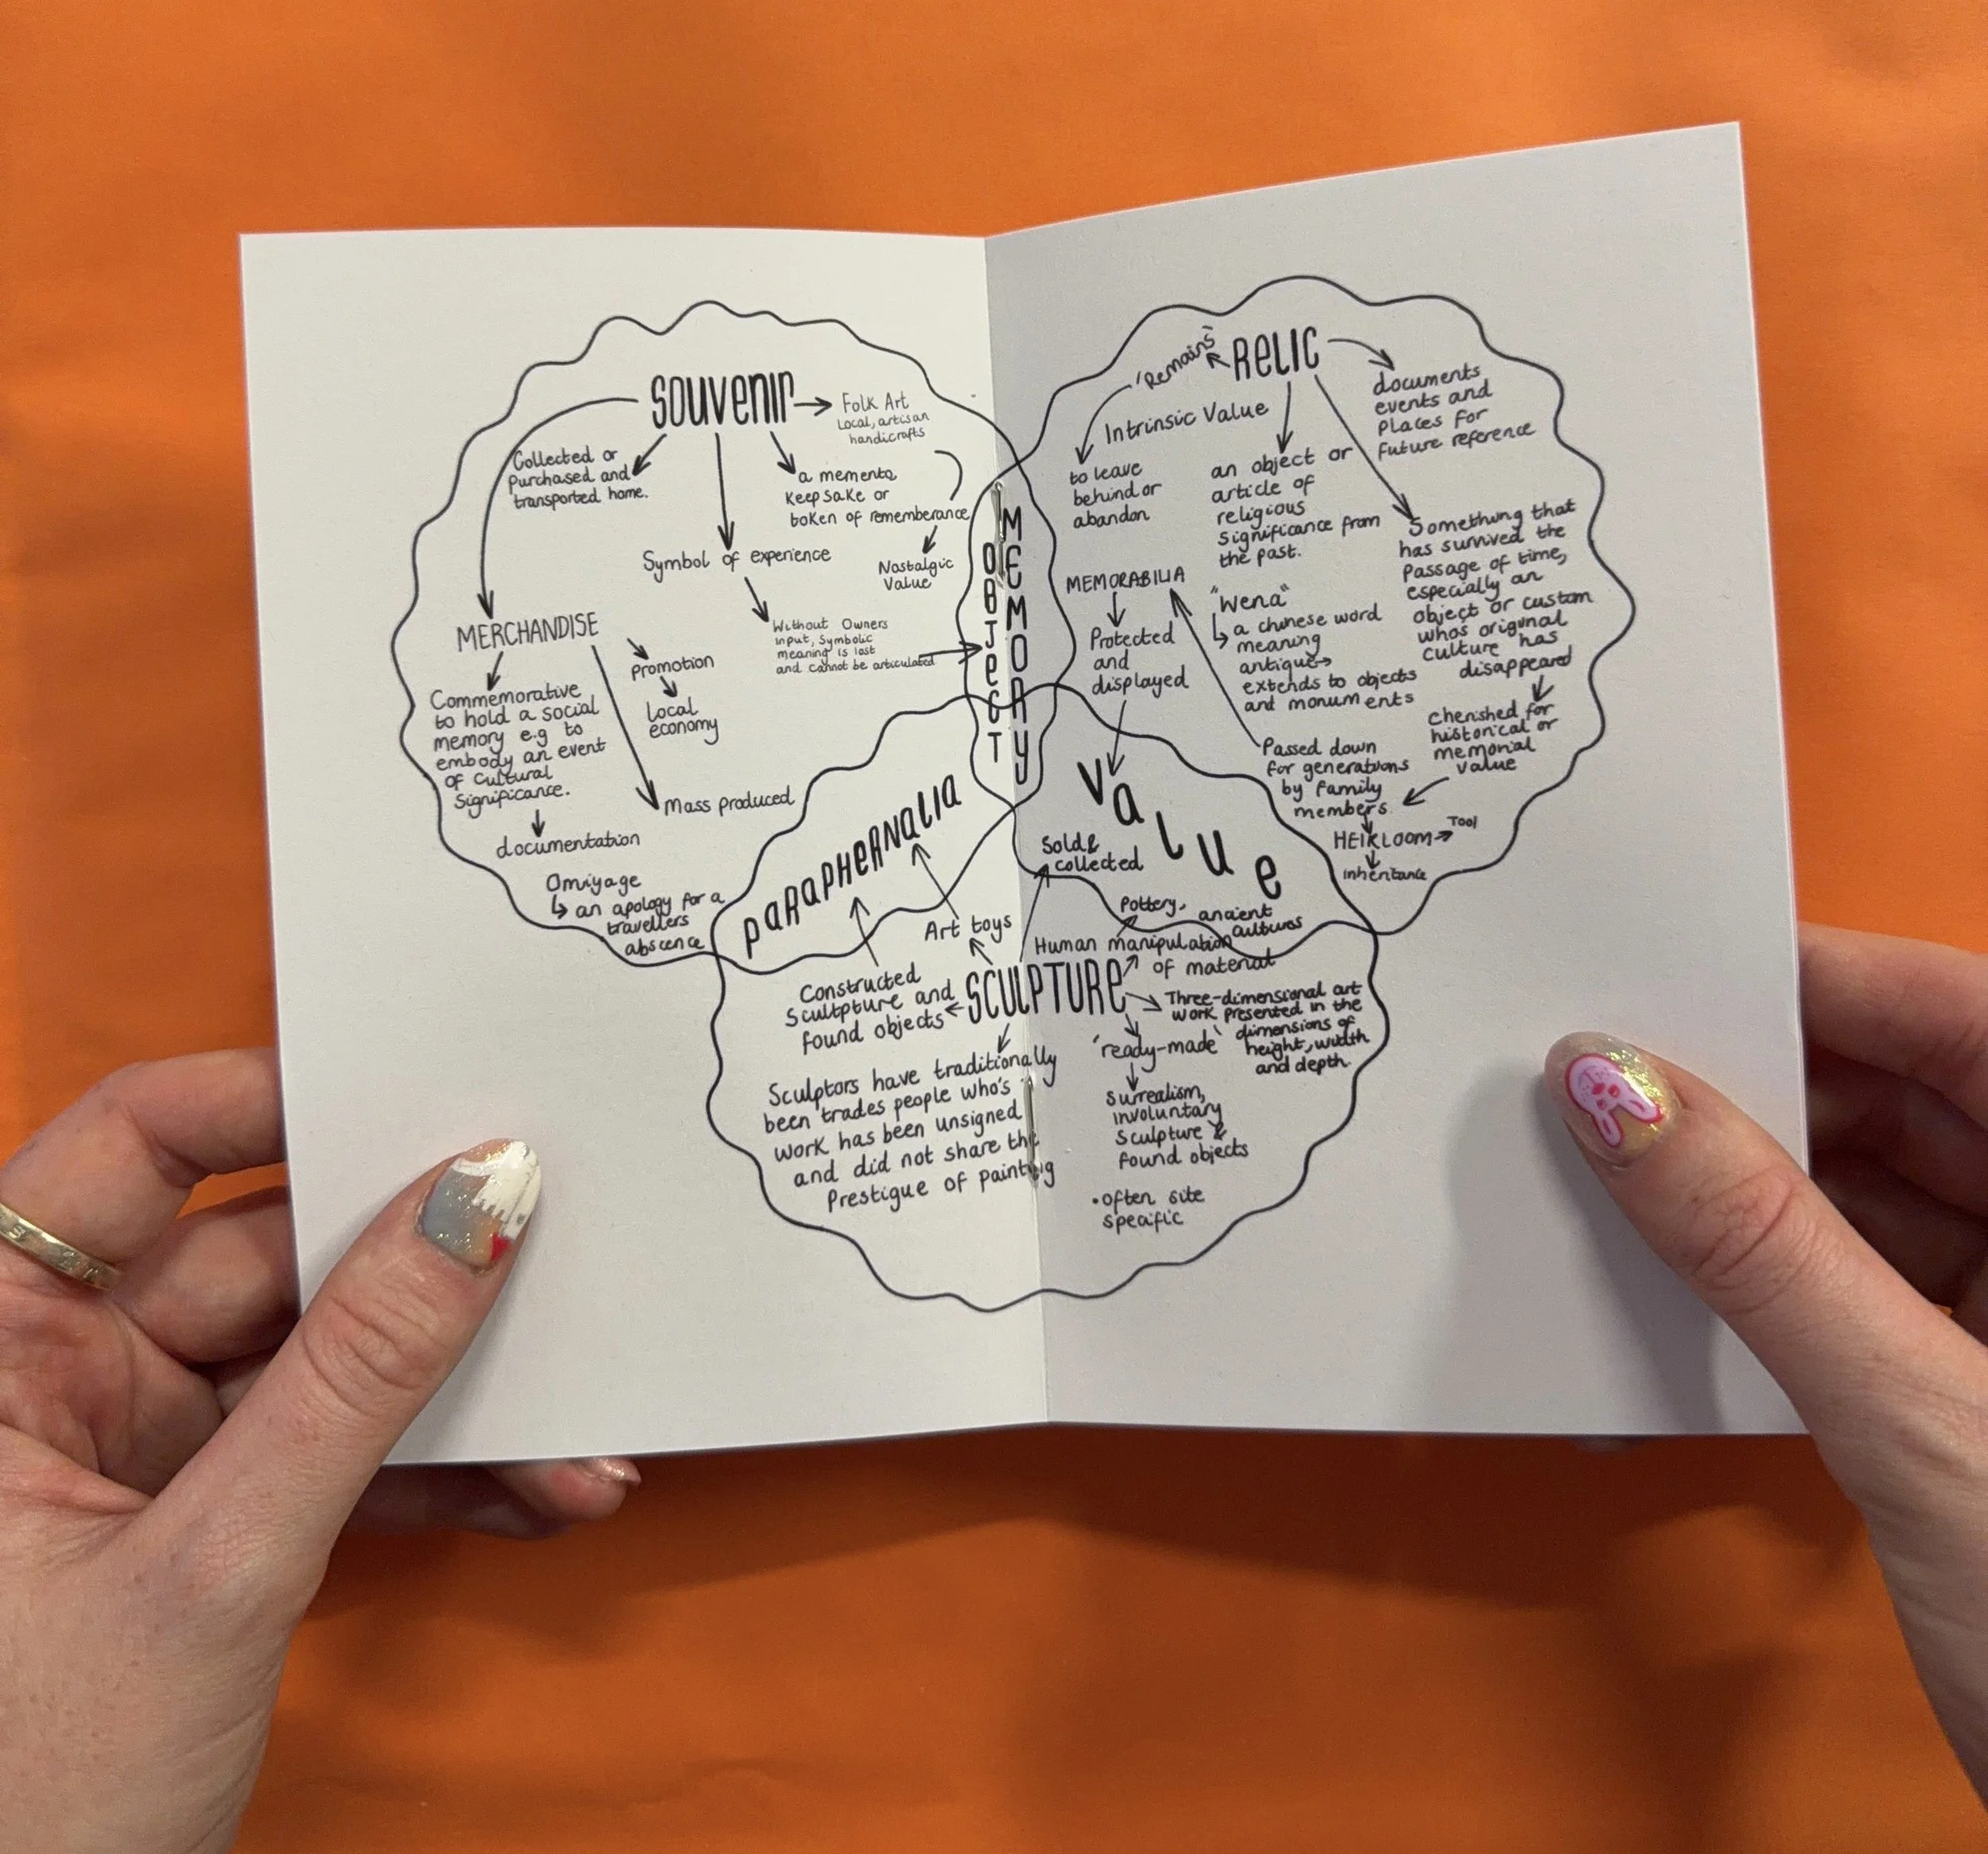 SOUVENIR
Folk Art
Local, artisan
handicrafts
Collected or
Purchased and
transported home.
a memento
Keepsake or
token of rememberance
Nostalgic
Value
Symbol of experience
Without Owners
input, symbolic
meaning is lost
and cannot be articulated
MERCHANDISE
promotion
Local
economy
Commemorative
to hold a social
memory e.g to
embody an event
of cultural
Significance.
documentation
Mass produced
Omiyage
an apology for a
travellers
abscence
OBJECT
MEMORY
RELIC
'Remains'
Intrinsic Value
to leave
behind or
abandon
documents
events and
places for
future reference
an object or
article of
religious
significance from
the past.
Something that
has survived the
passage of time,
especially an
object or custom
whos original
culture has
disappeared
MEMORABILIA
Protected
and
displayed
"Wena"
a chinese word
meaning
antique
extends to objects
and monuments
cherished for
historical or
memorial
value
Passed down
for generations
by family
members.
HEIRLOOM
Tool
inheritance
Value
PARAPHERNALIA
Sold &
collected
Art toys
Pottery,
ancient
cultures
Human manipulation
of material
SCULPTURE
Constructed
Scultpture and
found objects
Three-dimensional art
work presented in the
dimensions of
height, width
and depth.
'ready-made'
Surrealism,
involuntary
Sculpture &
found objects
•often site
specific
Sculptors have traditionally
been trades people who's
work has been unsigned
and did not share the
Prestigue of painting